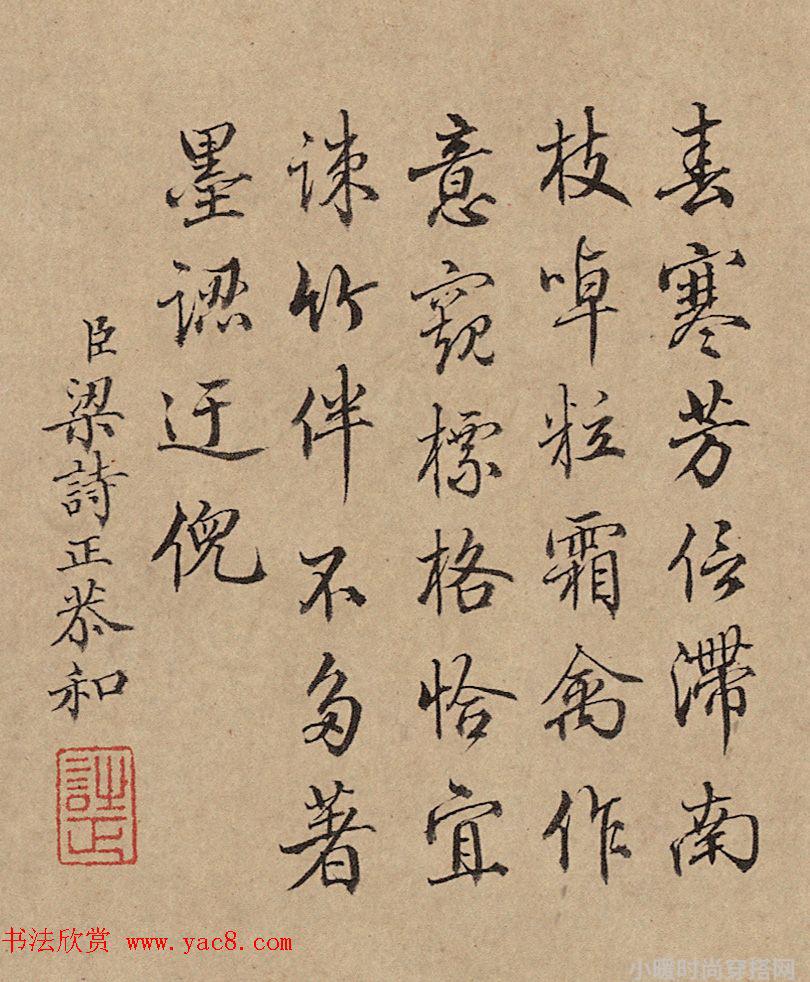 春寒芳信滯南
枝啅粒霜禽作
意窺標格恰宜
疎竹伴不多著
墨認迂倪
臣梁詩正恭和
詩正
书法欣赏 www.yac8.com
小暖时尚穿搭网